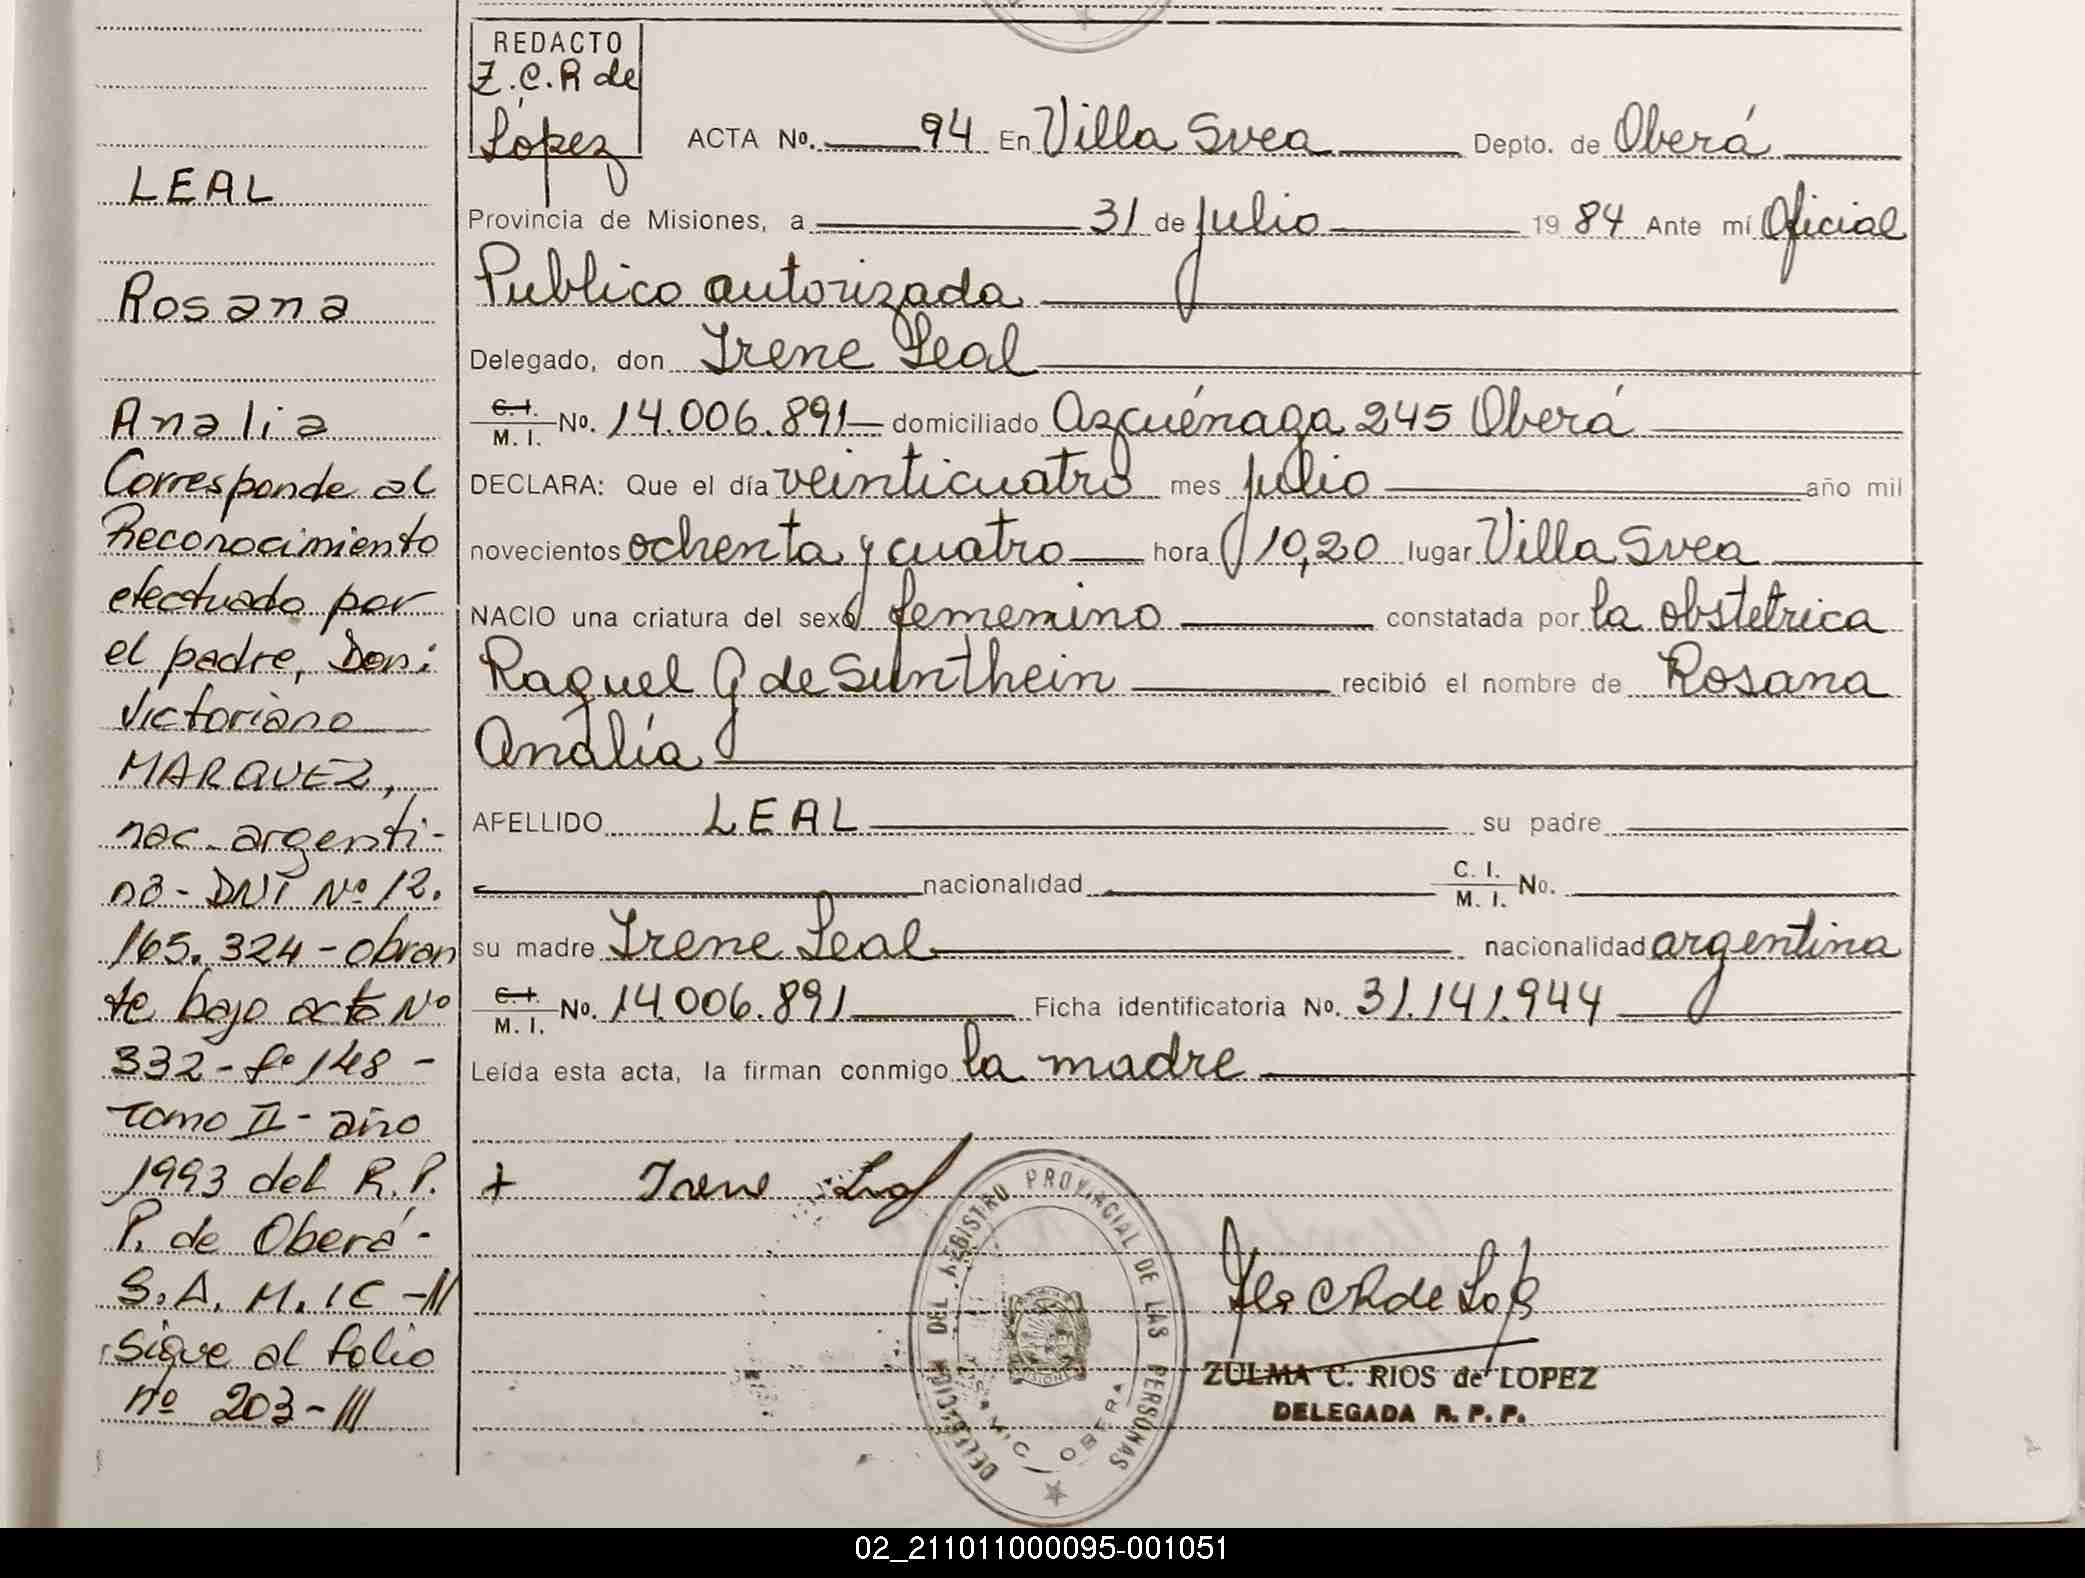 LEAL
Rosana
Analia
Corresponde al
Reconocimiento
efectuado por
el padre, Don:
Victoriano
MARQUEZ,
nac. argenti-
na - DNI Nº 12.
165.324 - obran
te bajo acta Nº
332 - fº 148 -
Tomo II - año
1993 del R.P.
P. de Oberá -
S.A.M.IC -//
Sigue al folio
nº 203 - ///
REDACTO
Z.C.R de
López
ACTA No. 94 En Villa Svea Depto. de Oberá
Provincia de Misiones, a 31 de julio 1984 Ante mí Oficial
Publico autorizada
Delegado, don Irene Leal
C.I. / M. I. No. 14.006.891 domiciliado Azcuénaga 245 Oberá
DECLARA: Que el día veinticuatro mes julio año mil
novecientos ochenta y cuatro hora 10,20 lugar Villa Svea
NACIO una criatura del sexo femenino constatada por la obstetrica
Raquel G de Sunthein recibió el nombre de Rosana
Analía
APELLIDO LEAL su padre
nacionalidad C. I. / M. I. No.
su madre Irene Leal nacionalidad argentina
C.I. / M. I. No. 14.006.891 Ficha identificatoria No. 31.141.944
Leída esta acta, la firman conmigo la madre
+ Irene Leal
DELEGACION DEL REGISTRO PROVINCIAL DE LAS PERSONAS
OBERA
MISIONES
ZULMA C. RIOS de LOPEZ
DELEGADA R. P. P.
02_211011000095-001051